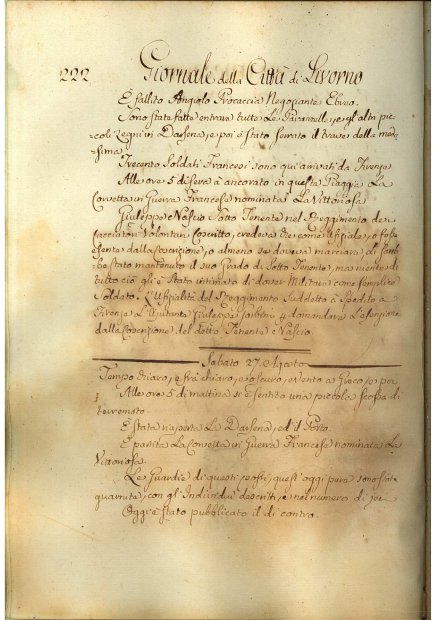 222 Giornale della Città di Livorno
È fallito Angiolo Procaccia Negoziante Ebreo.
Sono state fatte entrare tutte Le Paranzelle, e gl'altri pic-
coli Legni in Darsena, e poi è stato serrato il trave della mede-
sima.
Trecento Soldati Francesi sono qui arrivati da Firenze
Alle ore 5 di sera à ancorato in questa Piaggia La
Corvetta in Guerra Francese nominata La Vittoriosa
Giuseppe Nascio Sotto Tenente nel Reggimento dei
Cacciatori Volontari Coscritto, credeva che come Uffiziale, o fosse
esente dalla Coscrizione, o almeno se doveva marciare, li sareb-
be stato mantenuto il suo Grado di Sotto Tenente, ma niente di
tutto ciò gli è stato intimato di dover Militare come semplice
Soldato. L'Uffizialità del Reggimento Suddetto à spedito a
Firenze L'Aiutante Giuseppe a domandare L'esenzione
dalla Coscrizione del detto Tenente Nascio.
Sabato 27. Agosto
Tempo chiaro, e frà chiaro, e oscuro, e vento a Greco, e poi
Alle ore 5 di mattina si è sentito una piccola scossa di
terremoto
È stata riaperta La Darsena, ed il Porto.
È partita La Corvetta in Guerra Francese nominata La
Vittoriosa.
Le Guardie di questi posti, quest'oggi pure sono state
guarnite, con gl'Individui descritti, e nel numero di
Oggi è stato pubblicato il di contro.